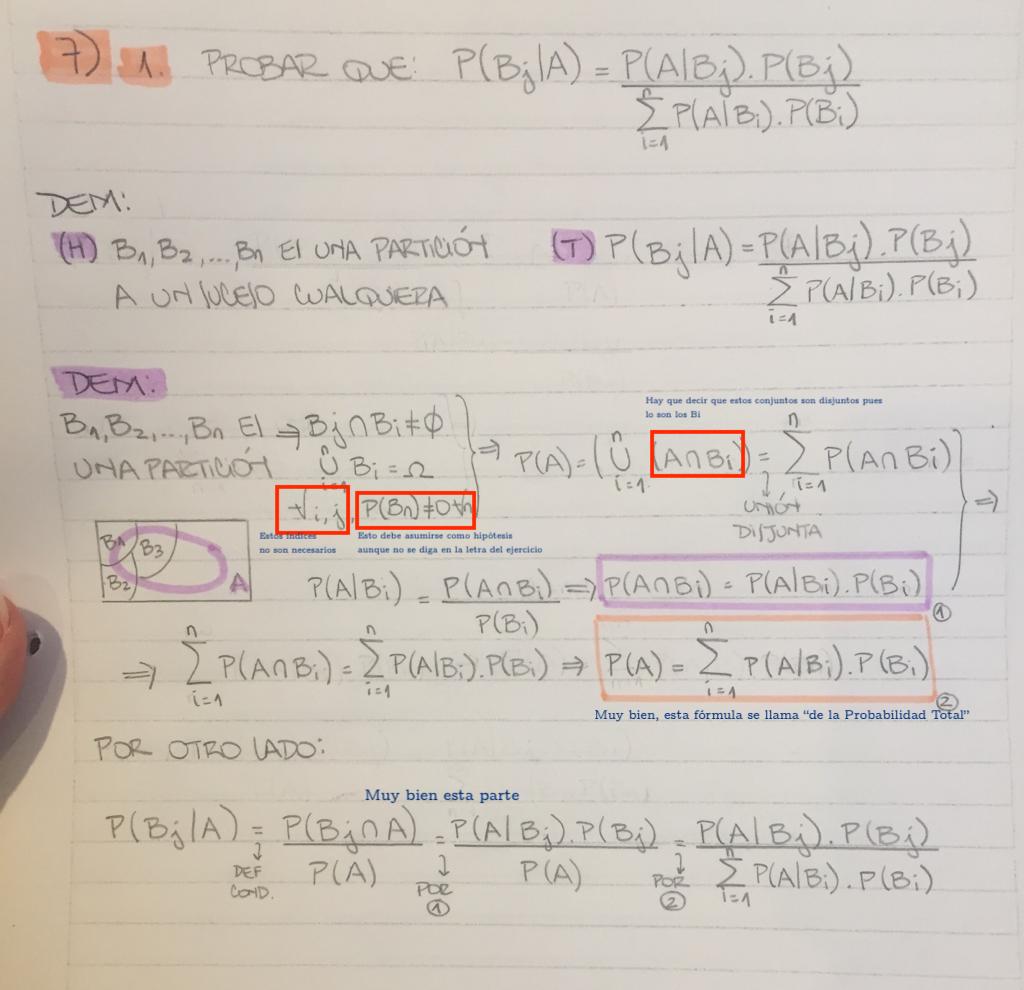 7) 1. PROBAR QUE: P(Bj|A) = P(A|Bj). P(Bj)
n
∑ P(A|Bi). P(Bi)
i=1
DEM:
(H) B1, B2, ..., Bn ES UNA PARTICIÓN
A UN SUCESO CUALQUIERA
(T) P(Bj|A) = P(A|Bj). P(Bj)
n
∑ P(A|Bi). P(Bi)
i=1
DEM:
B1, B2, ..., Bn ES ⇒ Bj ∩ Bi ≠ ∅
UNA PARTICIÓN
n
∪ Bi = Ω
i=1
∀ i,j, P(Bn) ≠ 0 ∀n
Estos índices
no son necesarios
Esto debe asumirse como hipótesis
aunque no se diga en la letra del ejercicio
Hay que decir que estos conjuntos son disjuntos pues
lo son los Bi
n n
⇒ P(A) = (∪ (A∩Bi) = ∑ P(A∩Bi) ⇒
i=1 i=1
↓
UNIÓN
DISJUNTA
B1 B3
B2 A
P(A|Bi) = P(A∩Bi) ⇒ P(A∩Bi) = P(A|Bi). P(Bi)
P(Bi)
①
n n n
⇒ ∑ P(A∩Bi) = ∑ P(A|Bi). P(Bi) ⇒ P(A) = ∑ P(A|Bi). P(Bi)
i=1 i=1 i=1
②
Muy bien, esta fórmula se llama “de la Probabilidad Total”
POR OTRO LADO:
Muy bien esta parte
P(Bj|A) = P(Bj∩A) = P(A|Bj). P(Bj) = P(A|Bj). P(Bj)
↓ P(A) ↓ P(A) ↓ n
∑ P(A|Bi). P(Bi)
i=1
DEF
COND.
POR
①
POR
②